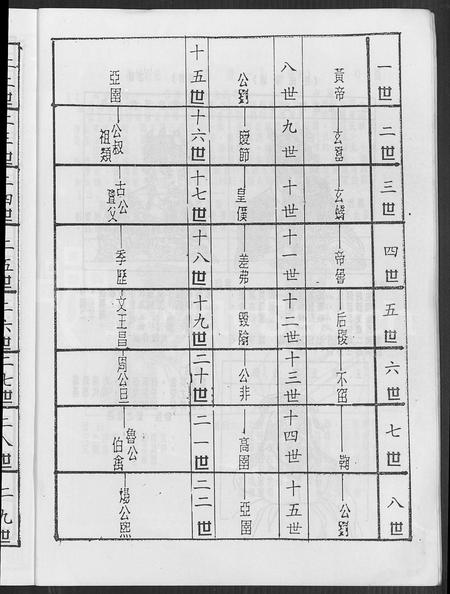 一世 二世 三世 四世 五世 六世 七世 八世
黃帝 玄囂 玄蟜 帝嚳 后稷 不窋 鞠 公劉
八世 九世 十世 十一世 十二世 十三世 十四世 十五世
公劉 慶節 皇僕 差弗 毀隃 公非 高圉 亞圉
十五世 十六世 十七世 十八世 十九世 二十世 二一世 二二世
亞圉 公叔祖類 古公亶父 季歷 文王昌 周公旦 魯公伯禽 煬公熙
二四世 二五世 二六世 二七世 二八世 二九世